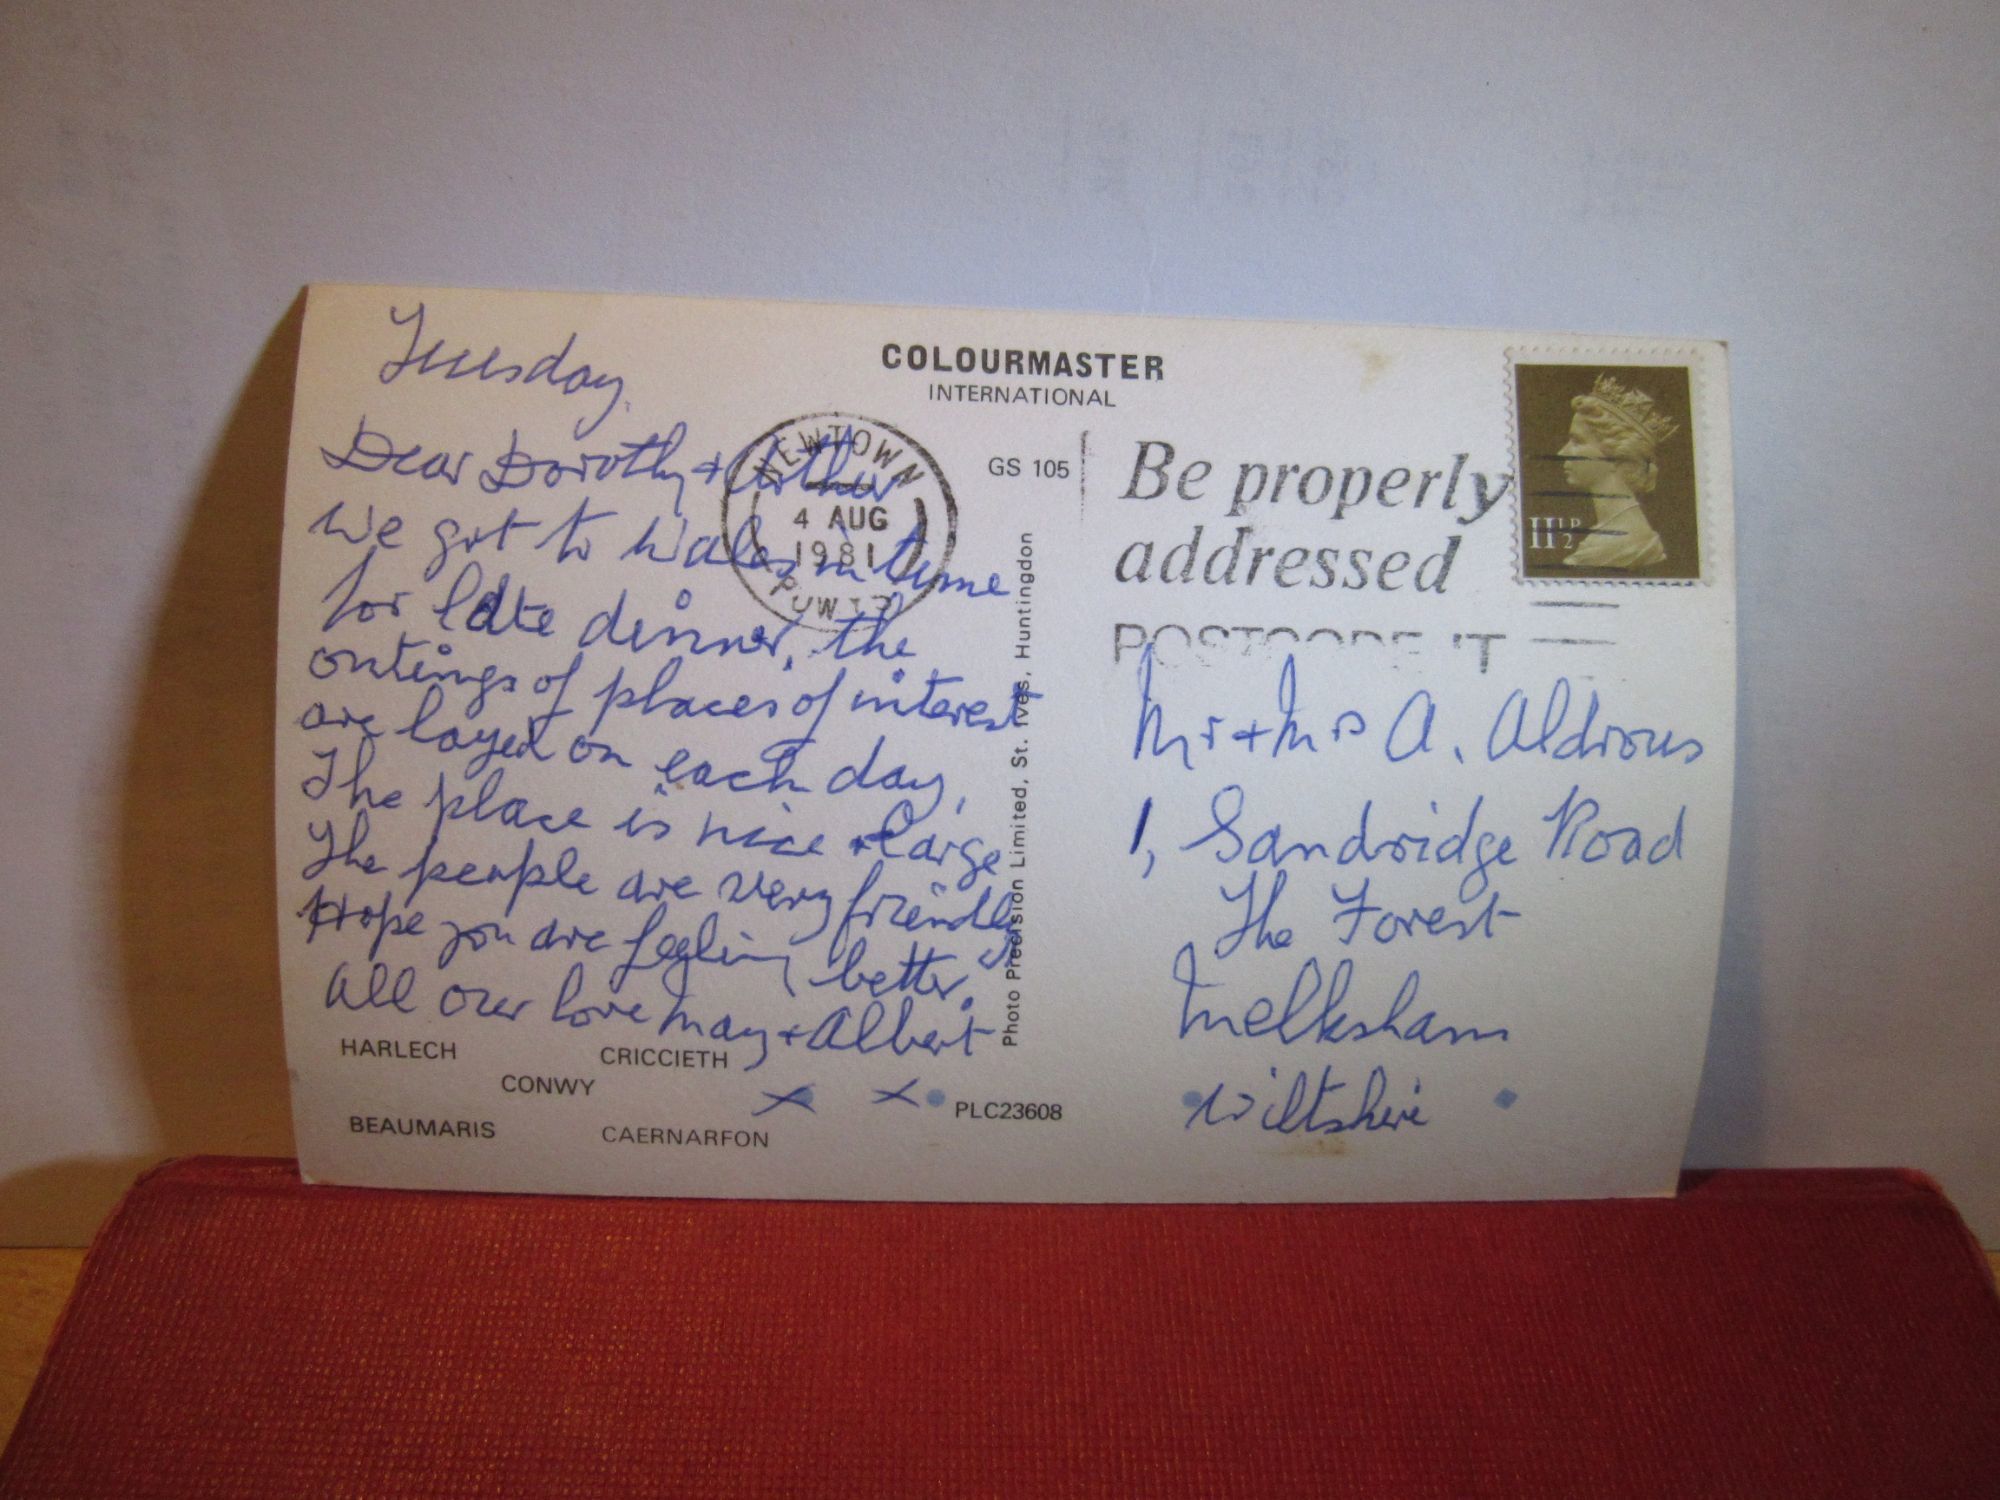 Tuesday.
Dear Dorothy + Arthur
We got to Wales in time
for late dinner, the
outings of places of interest
are layed on each day,
The place is nice + large
The people are very friendly
Hope you are feeling better.
All our love May + Albert
x x
HARLECH CRICCIETH
CONWY
BEAUMARIS CAERNARFON
PLC23608
COLOURMASTER
INTERNATIONAL
GS 105
Photo Precision Limited, St. Ives, Huntingdon
NEWTOWN
4 AUG
1981
POWYS
Be properly
addressed
POSTCODE IT
11½P
Mr + Mrs A. Aldrous
1, Sandridge Road
The Forest
Melksham
Wiltshire